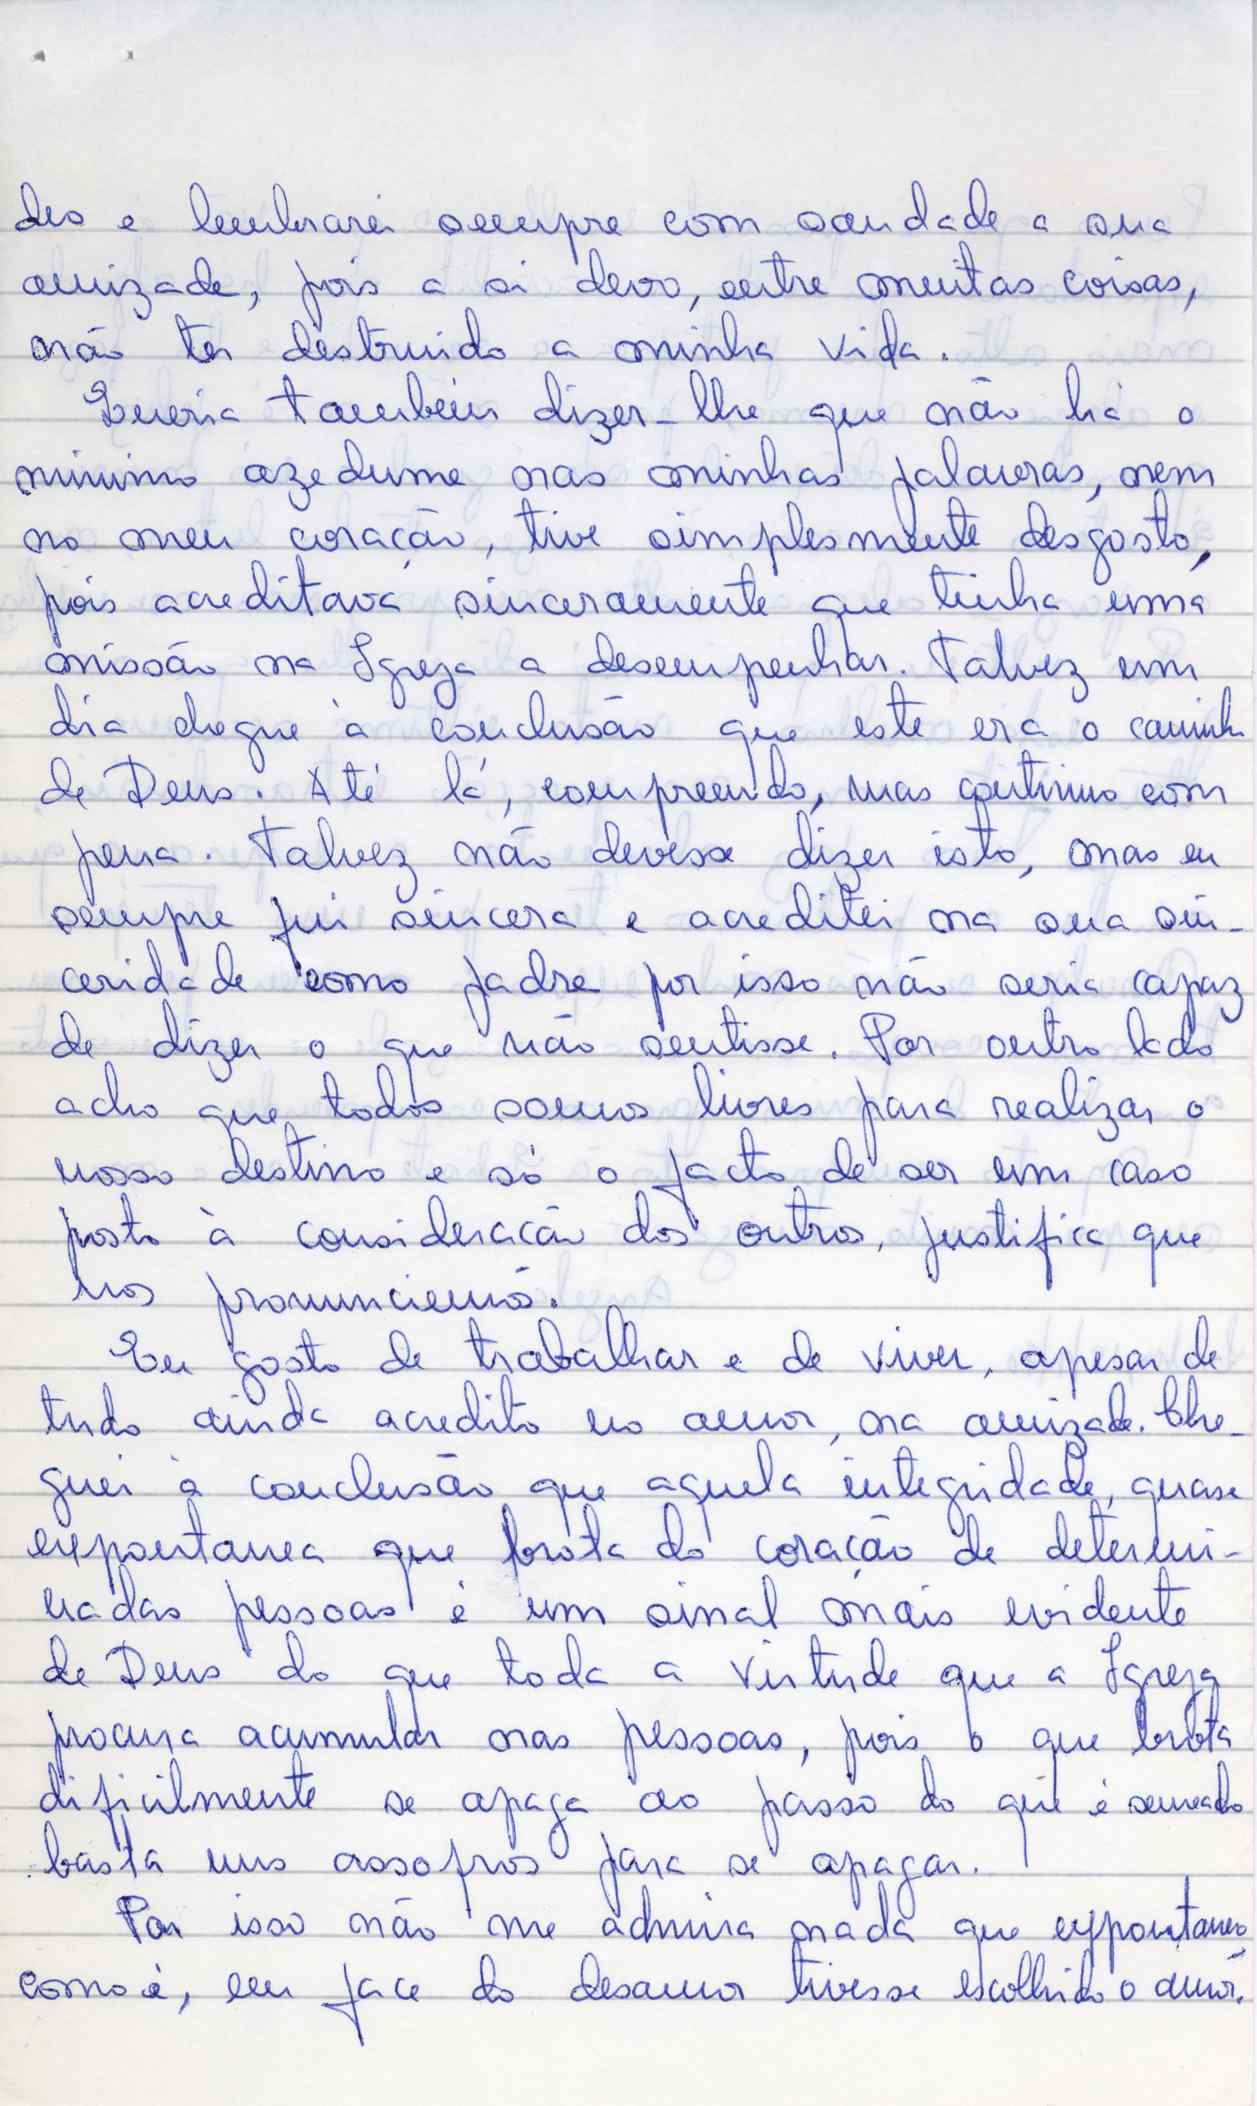 des e lembrarei sempre com saudade a sua
amizade, pois a si devo, entre muitas coisas,
não ter destruido a minha vida.
Queria também dizer-lhe que não há o
minimo azedume nas minhas palavras, nem
no meu coração, tive simplesmente desgosto,
pois acreditava sinceramente que tinha uma
missão na Igreja a desempenhar. Talvez um
dia chegue à conclusão que este era o caminho
de Deus. Até lá, compreendo, mas continuo com
pena. Talvez não devesse dizer isto, mas eu
sempre fui sincera e acreditei na sua sin-
ceridade como padre por isso não seria capaz
de dizer o que não sentisse. Por outro lado
acho que todos somos livres para realizar o
nosso destino e só o facto de ser um caso
posto à consideração dos outros, justifica que
nos pronunciemos.
Eu gosto de trabalhar e de viver, apesar de
tudo ainda acredito no amor, na amizade. Che-
guei à conclusão que aquela integridade, quase
expontanea que brota do coração de determi-
nadas pessoas é um sinal mais evidente
de Deus do que toda a virtude que a Igreja
procura acumular nas pessoas, pois o que brota
dificilmente se apaga ao passo do que é semeado
basta uns assopros para se apagar.
Por isso não me admira nada que expontaneo
como é, em face do desamor tivesse escolhido o amor.